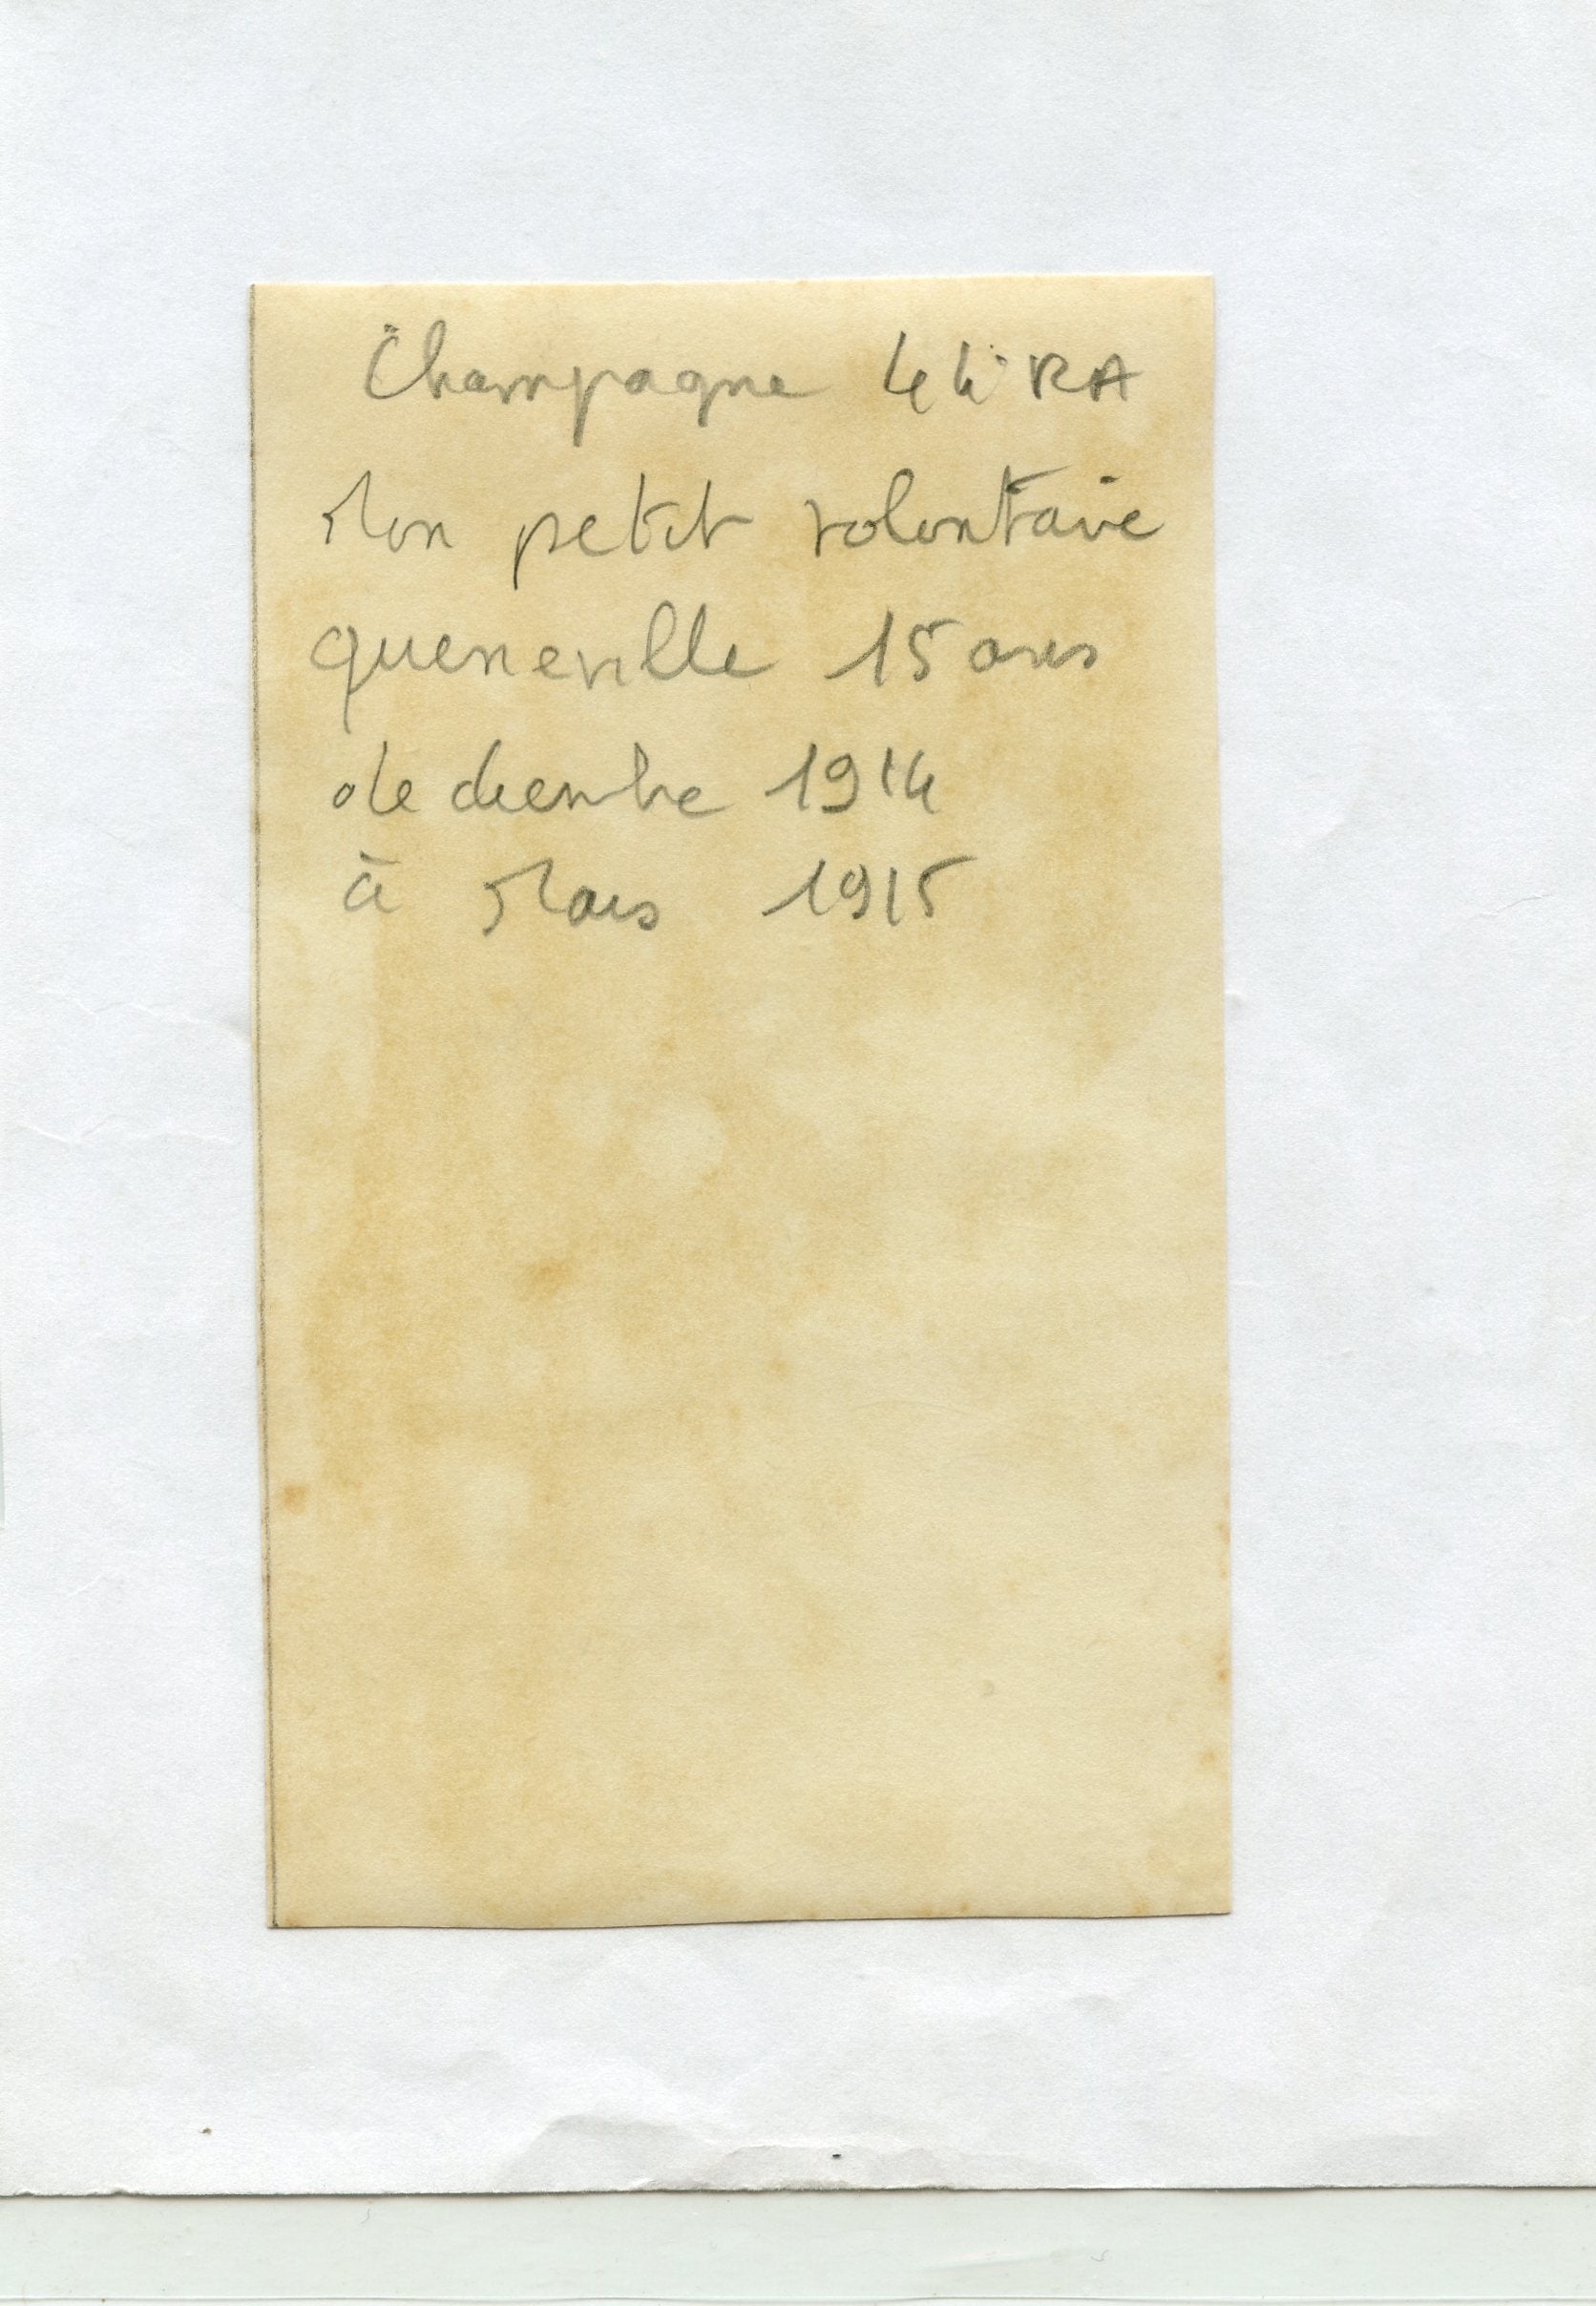 Champagne 44° RA
Mon petit volontaire
queneville 15 ans
de decembre 1914
à Mars 1915